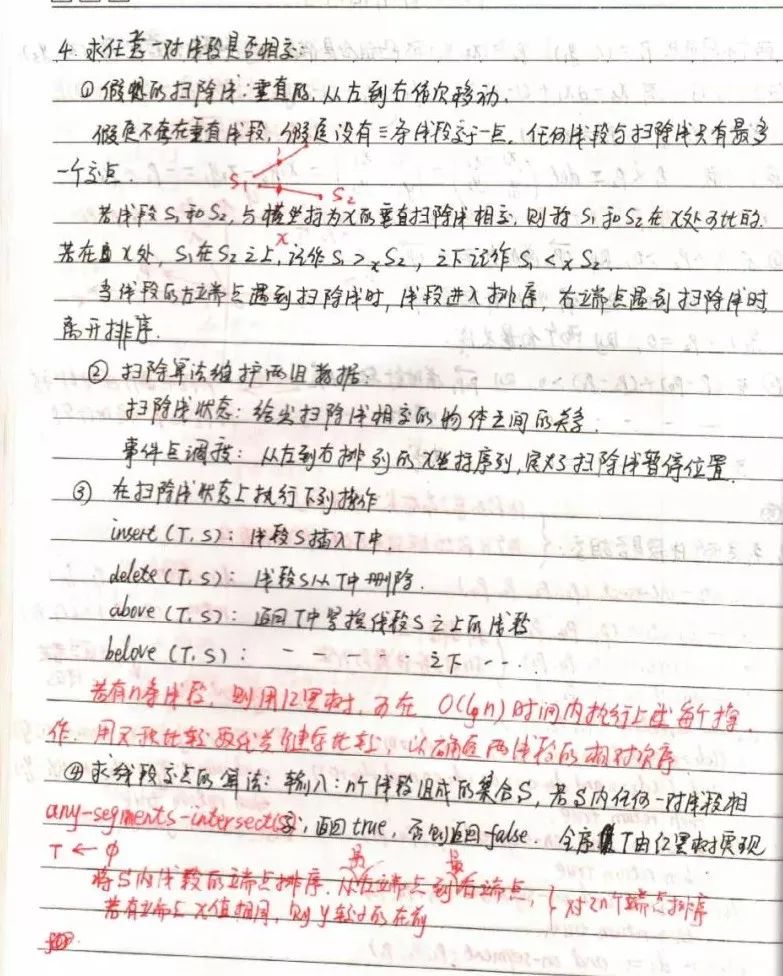 4. 求任意一对线段是否相交:
① 假想的扫除线: 垂直的, 从左到右依次移动.
假定不存在垂直线段, 假定没有三条线段交于一点, 任何线段与扫除线只有最多
一个交点.
S₁ S₂
若线段 S₁ 和 S₂, 与横坐标为x的垂直扫除线相交, 则称 S₁ 和 S₂ 在 x处可比的.
x
若在 x处, S₁ 在 S₂ 之上, 记作 S₁ >ₓ S₂, 之下记作 S₁ <ₓ S₂.
当线段的左端点遇到扫除线时, 线段进入排序, 右端点遇到扫除线时
离开排序.
② 扫除算法维护两组数据
扫除线状态: 给出扫除线相交的物体之间的关系.
事件点调度: 从左到右排列的x坐标序列, 定义了扫除线暂停位置.
③ 在扫除线状态上执行下列操作
insert (T, S): 线段S插入T中.
delete (T, S): 线段S从T中删除.
above (T, S): 返回T中紧挨线段S之上的线段
belove (T, S): - - - - - 之下 - - .
若有n条线段, 则用红黑树, 可在 O(lgn) 时间内执行上述每个操
作. 用叉积比较取代关键字比较, 以确定两线段的相对次序
④ 求线段交点的算法: 输入: n个线段组成的集合S, 若S内任何一对线段相
any-segments-intersect(S) 交, 返回true, 否则返回false. 全序T由红黑树实现
T ← ϕ
将S内线段的端点排序, 从最左端点到最右端点, { 对2n个端点排序
若有端点 x值相同, 则y较小的在前